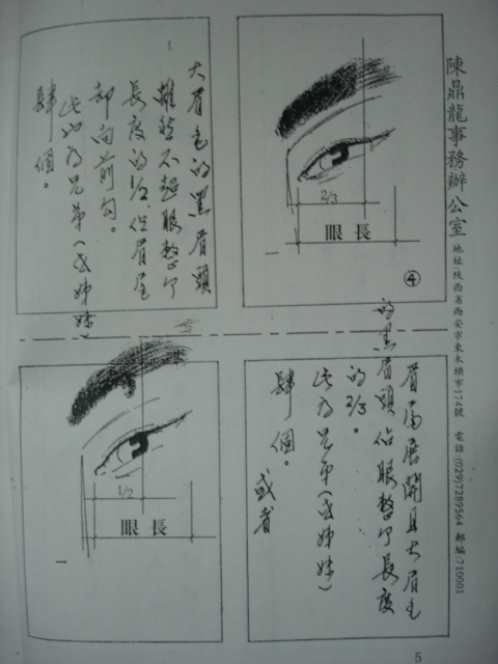 陳鼎龍事務辦公室 地址:陝西省西安市東木頭市174號 電話:(029)7289564 郵編:710001
2/3
眼長
④
眉屬展開且大眉毛
的黑眉頭佔眼整個長度
的2/3。
此為兄弟(或姊妹)
肆個。
或者
大眉毛的黑眉頭
雖然不超眼整個
長度的1/2,但眉尾
部向前勾。
此也為兄弟(或姊妹)
肆個。
1/2
眼長
5